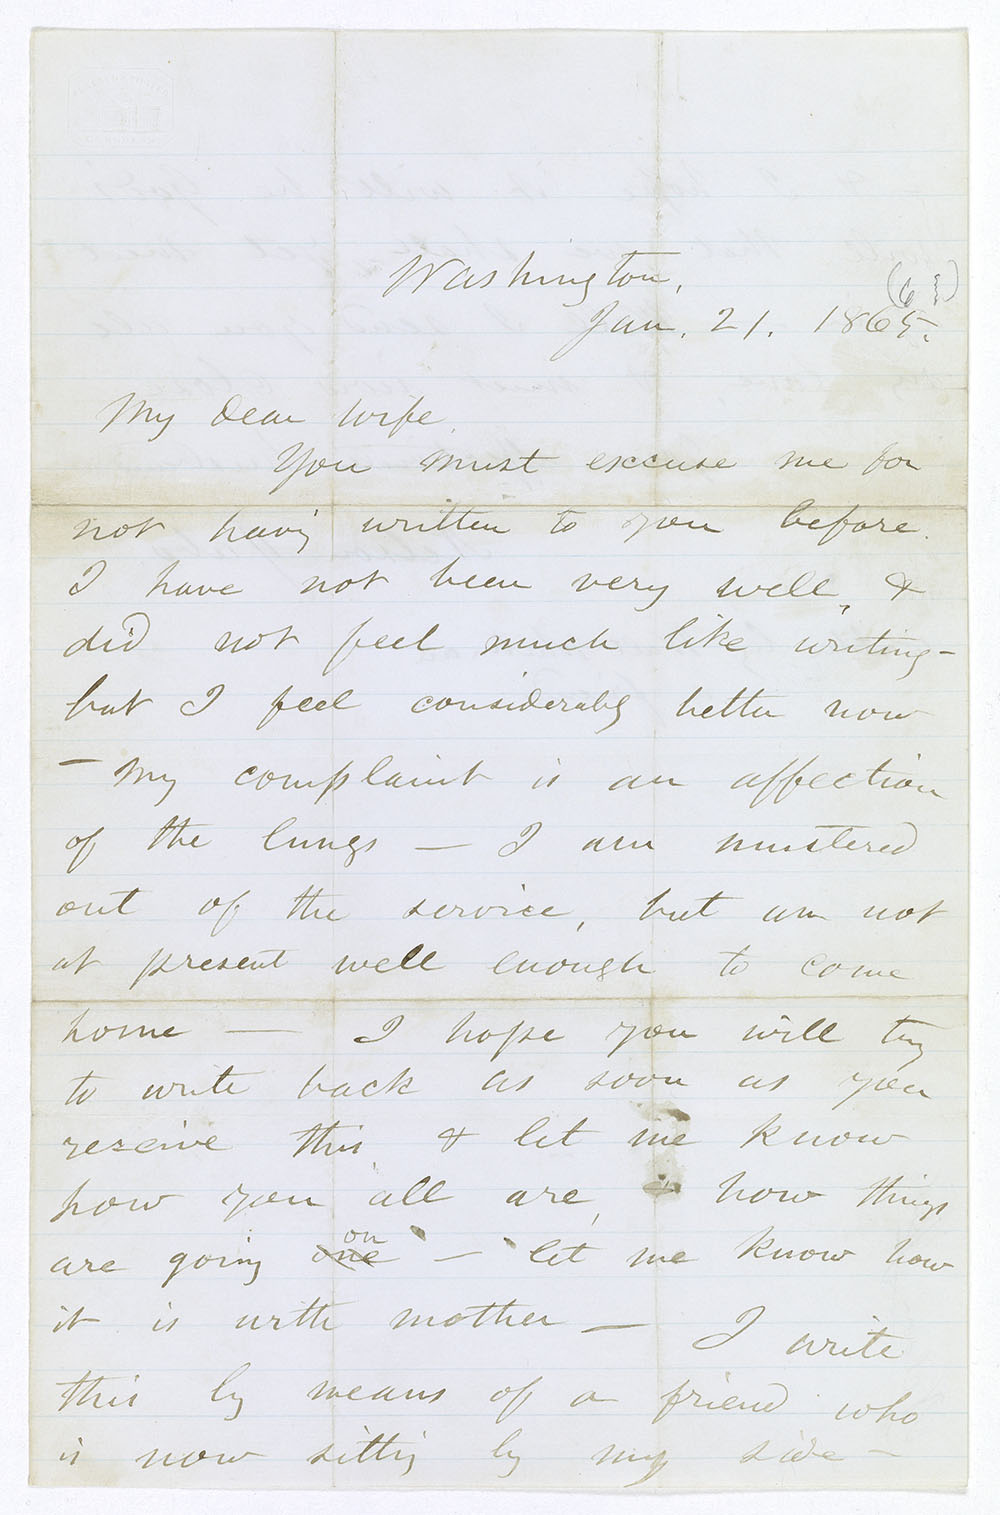 Washington,
(6 
Jan. 21. 1865.
My dear wife.
You must excuse me for
not having written to you before.
I have not been very well, &
did not feel much like writing-
but I feel considerably better now
- My complaint is an affection
of the lungs — I am mustered
out of the service, but am not
at present well enough to come
home — I hope you will try
to write back as soon as you
receive this & let me know
how you all are, & how things
are going one on - let me know how
it is with mother — I write
this by means of a friend who
is now sitting by my side -